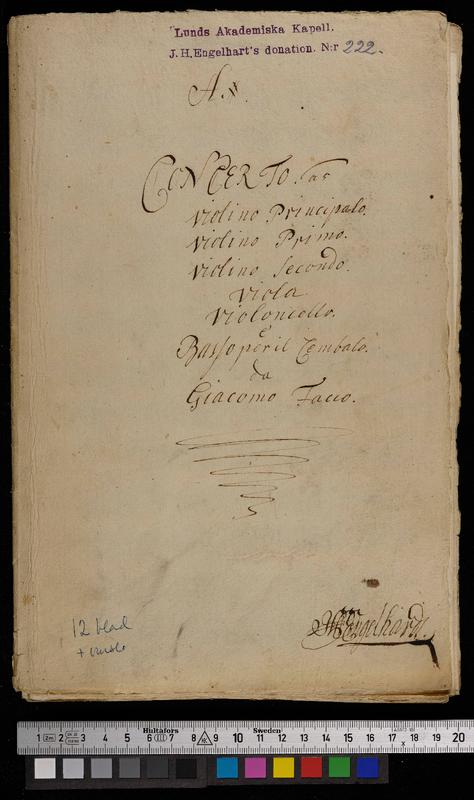 Lunds Akademiska Kapell.
J.H.Engelhart's donation. N:r 222.
CONCERTO.
Violino Principalo.
Violino Primo.
Violino Secondo.
Viola
Violoncello.
è
Basso per il Cembalo.
da
Giacomo Facco.
Engelhardt.
12 blad
+ omslag
Hultafors Sweden
1 2 3 4 5 6 7 8 9 10 11 12 13 14 15 16 17 18 19 20